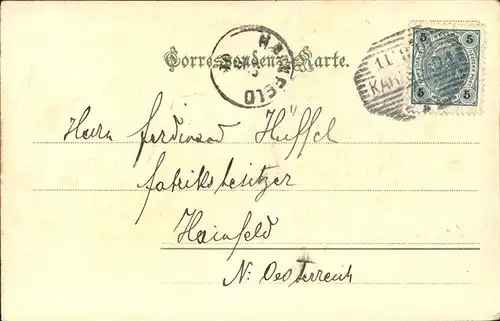 Correspondenz-Karte.
HAINFELD
5 5
5 5
Herrn Ferdinand Hüffel
Fabriksbesitzer
Hainfeld
N. Oesterreich